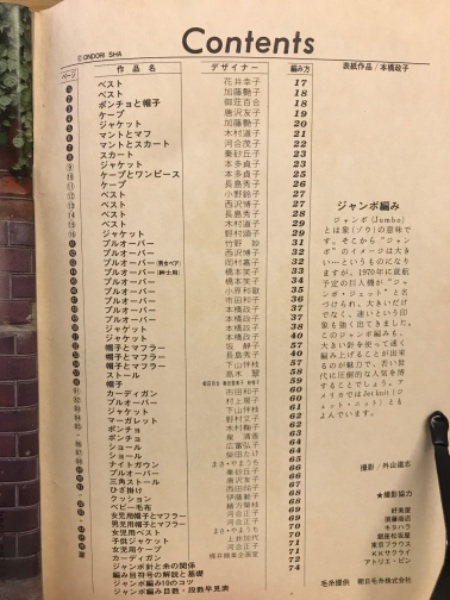 ©ONDORI SHA
Contents
表紙作品/本橋政子
ページ 作品名 デザイナー 編み方
ベスト 花井幸子 17
ベスト 加藤艶子 18
ポンチョと帽子 御荘百合 18
ケープ 唐沢友子 19
ジャケット 加藤艶子 20
マントとマフ 木村道子 21
マントとスカート 河合茂子 22
スカート 秦砂丘子 23
ジャケット 本多貞子 23
ケープとワンピース 本多貞子 25
ケープ 長島秀子 26
ベスト 小野鈴子 27
ベスト 西沢博子 27
ベスト 長島秀子 28
ベスト 木村道子 29
ジャケット 野村頌子 29
プルオーバー 竹野 31
プルオーバー 西沢博子 32
プルオーバー(男女ペア) 岡村嘉子 32
プルオーバー(紳士用) 橋本笑子 33
プルオーバー 橋本笑子 34
プルオーバー 35
プルオーバー 市田和子 36
プルオーバー 本橋政子
プルオーバー 本橋政子 37
ジャケット 本橋政子 38
ジャケット 本橋政子 40
帽子とマフラー 静子 57
帽子とマフラー 長島秀子 40
帽子とマフラー 下山伴枝 57
ストール 高木 58
帽子 59
カーディガン 市田和子 60
プルオーバー 村上房子 60
ジャケット 下山伴枝 61
マーガレット 野村文子 62
ポンチョ 木村鞠子 62
ポンチョ 泉 63
ショール 広富弘子 64
ショール 柴田たけ 64
ナイトガウン まき・やまうち 65
プルオーバー 秦砂丘子 66
三角ストール 唐沢友子 66
ひざ掛け 67
クッション 伊藤 68
ベビー毛布 緒方菊枝 68
女児用帽子とマフラー 河合正子 69
男児用帽子とマフラー 河合正子 70
女児用ベスト まき・やまうち 70
子供ジャケット 上井加代 71
女児用ケープ 河合正子 71
カーディガン 72
ジャンボ針と糸の関係 74
編み目符号の解説と基礎
ジャンボ編み10のコツ
ジャンボ編み目数・段数早見表
ジャンボ編み
ジャンボ(Jumbo)
とは象(ゾウ)の意味で
す。そこから“ジャン
ボ”のイメージは大き
い—というものになり
ますが、1970年に就航
予定の巨人機が“ジャ
ンボ・ジェット”と名
づけられ、大きいだけ
でなく、速いという印
象も強く出てきました。
このジャンボ編みも、
大きい針を使って速く
編み上げることが出来
るのが魅力で、若い世
代に圧倒的な人気を博
することでしょう。ア
メリカではJet knit(ジ
ェット・ニット)とも
よんでいます。
撮影/外山達志
★撮影協力
好美屋
須藤商店
キラハラ
銀座松坂屋
東京ブラウス
KKサクライ
アトリエ・ピン
毛糸提供 朝日毛糸株式会社